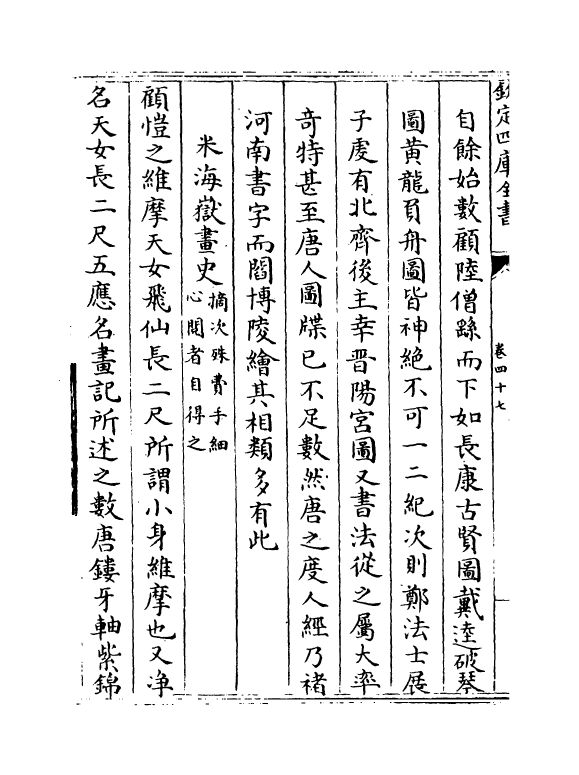 欽定四庫全書
卷四十七
自餘始數顧陸僧繇而下如長康古賢圖戴逵破琴
圖黃龍負舟圖皆神絶不可一二紀次則鄭法士展
子䖍有北齊後主幸晉陽宮圖又書法從之屬大率
竒特甚至唐人圖牒已不足數然唐之度人經乃褚
河南書字而閻博陵繪其相類多有此
米海嶽畫史摘次殊費手細
心閲者自得之
顧愷之維摩天女飛仙長二尺所謂小身維摩也又净
名天女長二尺五應名畫記所述之數唐鏤牙軸紫錦